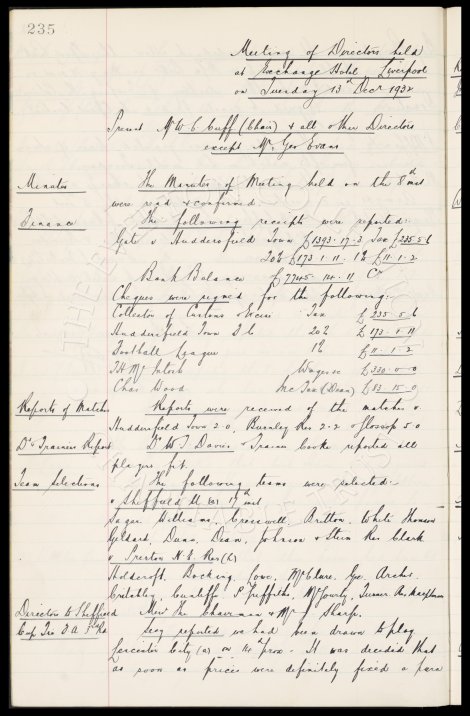 235
Meeting of Directors held
at Exchange Hotel Liverpool
on Tuesday 13th Decr 1932
Present Mr W. C. Cuff (Chair) & all other Directors
except Mr. Geo Evans
Minutes
The Minutes of Meeting held on the 8th inst
were read & confirmed.
Finance
The following receipts were reported:
Gate v Huddersfield Town £1393-17-3 Tax £235-5-6
20% £173-1-11 1% £11-1-2
Bank Balance £7745-14-11 Cr
Cheques were signed for the following:
Collector of Customs & Excise Tax £235-5-6
Huddersfield Town F C 20% £173-1-11
Football League 1% £11-1-2
T H McIntosh Wages &c £330-0-0
Chas Wood Inc Tax (Dean) £83-15-0
Reports of Matches
Reports were received of the matches v
Huddersfield Town 2-0, Burnley Res 2-2 & Glossop 5-0
Drs & Trainers Report
Dr W J Davies & Trainer Cooke reported all
players fit.
Team Selections
The following teams were selected:
v Sheffield U (a) 17th inst
Sagar Williams, Cresswell, Britton, White Thomson
Geldard, Dunn, Dean, Johnson & Stein Res Clark
v Preston N.E. Res (h)
Holdcroft, Bocking, Lowe, McClure, Gee, Archer
Critchley, Cunliffe, P Griffiths, McGourty, Turner Res
Directors to Sheffield
Messrs The Chairman & Mr J Sharp.
Cup Tie
Secy reported we had been drawn to play
Leicester City (a) on 14 prox. It was decided that
as soon as prices were definitely fixed a para